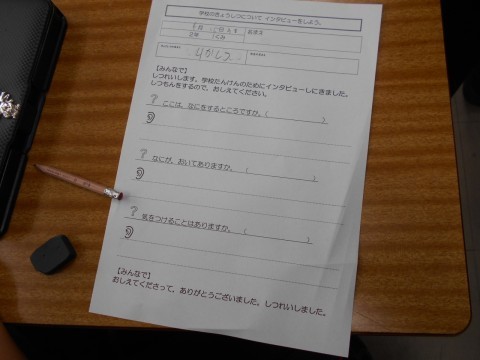 学校のきょうしつについて インタビューをしよう。
りかしつ
【みんなで】
しつれいします。学校たんけんのためにインタビューしにきました。
しつもんをするので、おしえてください。
? ここは、なにをするところですか。( )
? なにが、おいてありますか。( )
? 気をつけることはありますか。( )
【みんなで】
おしえてくださって、ありがとうございました。しつれいしました。